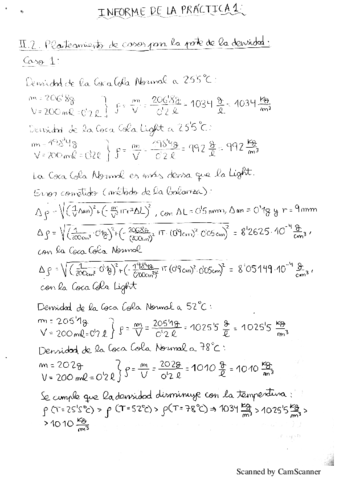 INFORME DE LA PRÁCTICA 1:
II.2. Planteamiento de casos para la parte de la densidad.
Caso 1:
Densidad de la Coca Cola Normal a 25'5°C:
m = 206'8g
V = 200 ml = 0'2 l } ρ = m/V = 206'8g/0'2 l = 1034 g/l = 1034 kg/m³
Densidad de la Coca Cola Light a 25'5°C:
m = 198'4g
V = 200 ml = 0'2 l } ρ = m/V = 198'4g/0'2 l = 992 g/l = 992 kg/m³
La Coca Cola Normal es más densa que la Light.
Error cometido (método de la balanza):
Δρ = √((1/V Δm)² + (-m/V² π r² ΔL)²), con ΔL = 0'5mm, Δm = 0'1g y r = 9mm
Δρ = √((1/200cm³ 0'1g)² + (-206'8g/(200cm³)² π (0'9cm)² 0'05cm)²) = 8'2625·10⁻⁴ g/cm³,
con la Coca Cola Normal
Δρ = √((1/200cm³ 0'1g)² + (-198'4g/(200cm³)² π (0'9cm)² 0'05cm)²) = 8'05149·10⁻⁴ g/cm³,
con la Coca Cola Light
Densidad de la Coca Cola Normal a 52°C:
m = 205'1g
V = 200 ml = 0'2 l } ρ = m/V = 205'1g/0'2 l = 1025'5 g/l = 1025'5 kg/m³
Densidad de la Coca Cola Normal a 78°C:
m = 202g
V = 200 ml = 0'2 l } ρ = m/V = 202g/0'2 l = 1010 g/l = 1010 kg/m³
Se cumple que la densidad disminuye con la Temperatura:
ρ(T=25'5°C) > ρ(T=52°C) > ρ(T=78°C) ⇒ 1034 kg/m³ > 1025'5 kg/m³ >
> 1010 kg/m³
Scanned by CamScanner